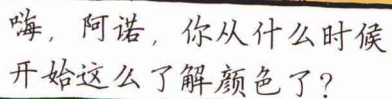 嗨，阿诺，你从什么时候
开始这么了解颜色了？